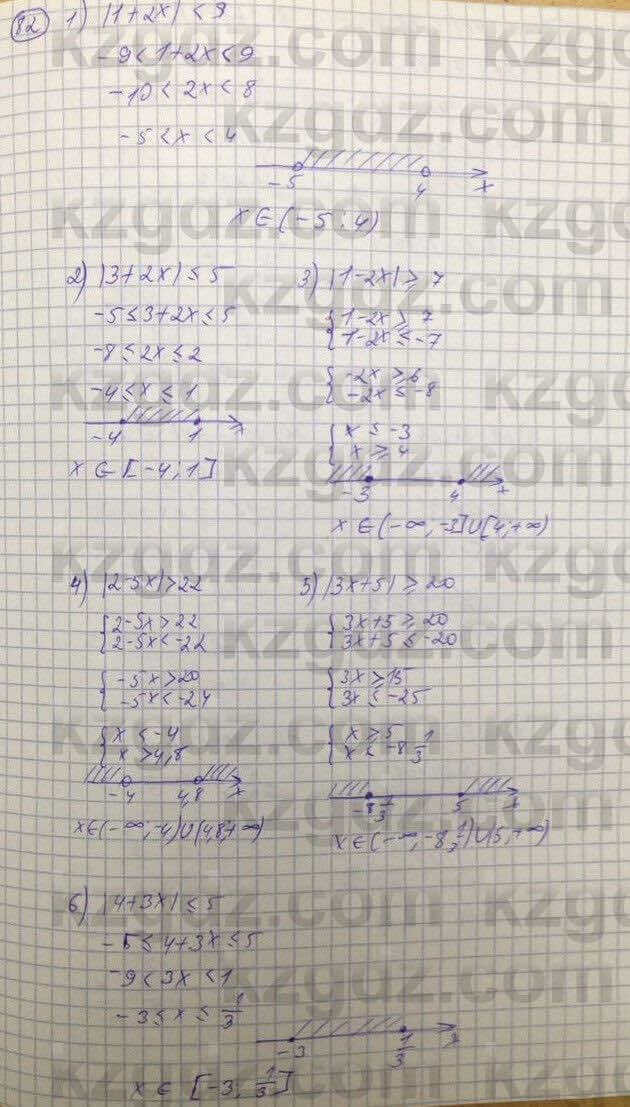 82 1) |1+2x| < 9
-9<1+2x<9
-10<2x<8
-5<x<4
-5 4 x
x∈(-5;4)
2) |3+2x| ≤ 5
-5≤3+2x≤5
-8≤2x≤2
-4≤x≤1
-4 1 x
x∈[-4;1]
3) |1-2x| ≥ 7
{1-2x ≥ 7
1-2x ≤ -7
{-2x ≥ 6
-2x ≤ -8
{x ≤ -3
x ≥ 4
-3 4 x
x∈(-∞,-3]∪[4,+∞)
4) |2-5x|>22
{2-5x>22
2-5x<-22
{-5x>20
-5x<-24
{x < -4
x >4,8
-4 4,8 x
x∈(-∞,-4)∪(4,8,+∞)
5) |3x+5| ≥ 20
{3x+5 ≥ 20
3x+5 ≤ -20
{3x ≥ 15
3x ≤ -25
{x ≥ 5
x ≤ -8 1/3
-8 1/3 5 x
x∈(-∞,-8 1/3)∪(5,+∞)
6) |4+3x| ≤ 5
-5≤4+3x≤5
-9<3x<1
-3≤x≤ 1/3
-3 1/3 x
x∈[-3; 1/3]